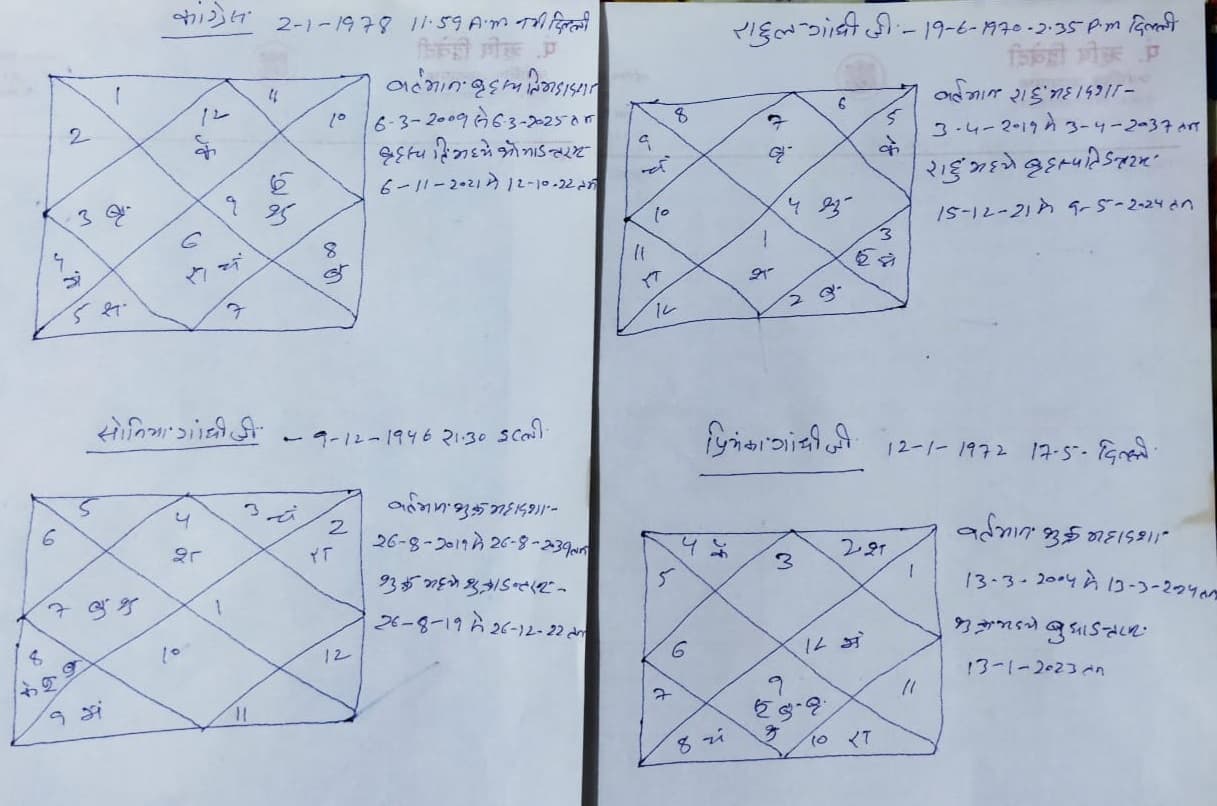 कांग्रेस 2-1-1978 11.59 A.m नयी दिल्ली
1
12
के
11
10
2
3 बृ
9
शु
4
मं
6
रा चं
8
बु
5 श
7
वर्तमान बृहस्पति महादशा
6-3-2009 से 6-3-2025 तक
बृहस्पति मध्ये भौमाऽन्तरम
6-11-2021 से 12-10-22 तक
राहुल गांधी जी - 19-6-1970 - 2.35 P.m दिल्ली
8
7
बृ
6
5
के
9
चं
10
4 शु
11
रा
1
श
3
मं
12
2 बु
वर्तमान राहु महादशा -
3-4-2019 से 3-4-2037 तक
राहु मध्ये बृहस्पतिऽन्तरम
15-12-21 से 9-5-2024 तक
सोनिया गांधी जी - 9-12-1946 21.30 इटली
5
4
श
3 चं
2
रा
6
7 बृ शु
1
8
के बु
10
12
9 मं
11
वर्तमान शुक्र महादशा -
26-8-2019 से 26-8-2039 तक
शुक्र मध्ये शुक्राऽन्तरम -
26-8-19 से 26-12-22 तक
प्रियंका गांधी जी 12-1-1972 17.5 - दिल्ली
4 के
3
2 श
5
1
6
12 मं
7
9
बु बृ
11
8 चं
10 रा
वर्तमान शुक्र महादशा
13-3-2004 से 13-3-2024 तक
शुक्र मध्ये बुधाऽन्तरम
13-1-2023 तक